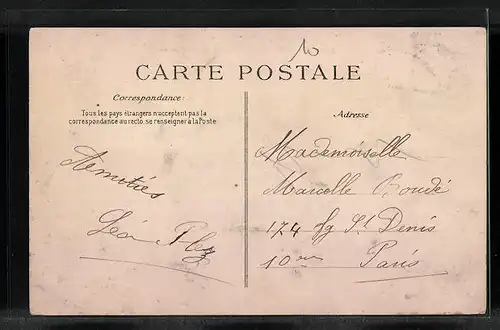 10
CARTE POSTALE
Correspondance:
Tous les pays étrangers n'acceptent pas la
correspondance au recto, se renseigner à la Poste
Amitiés
Léon
Adresse
Mademoiselle
Marcelle
174 fg St Denis
10me Paris